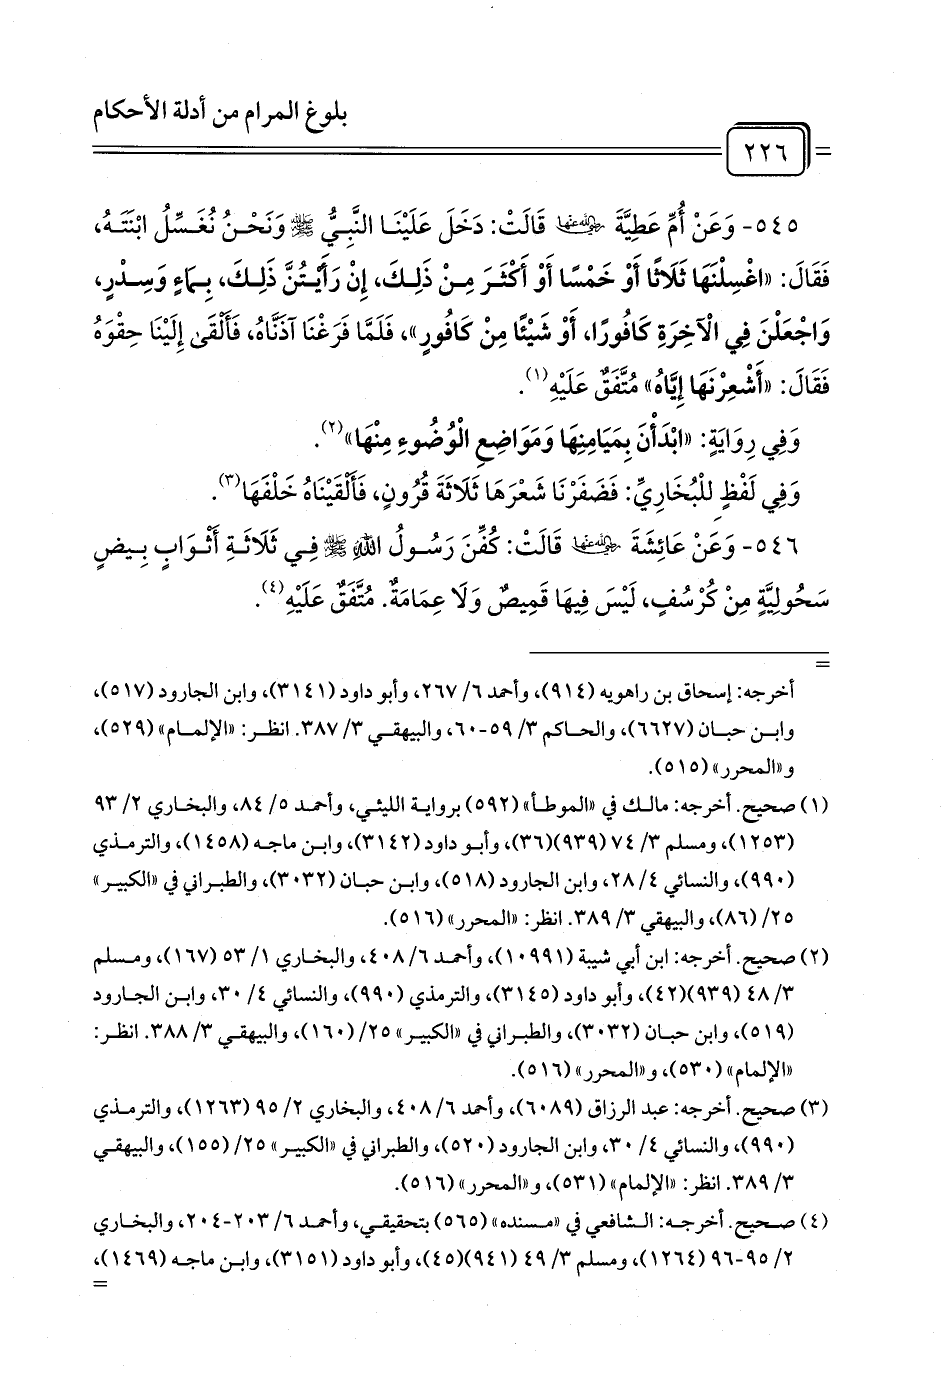 بلوغ المرام من أدلة الأحكام
٢٢٦
٥٤٥- وَعَنْ أُمِّ عَطِيَّةَ رضي الله عنها قَالَتْ: دَخَلَ عَلَيْنَا النَّبِيُّ ﷺ وَنَحْنُ نُغَسِّلُ ابْنَتَهُ،
فَقَالَ: «اغْسِلْنَهَا ثَلَاثًا أَوْ خَمْسًا أَوْ أَكْثَرَ مِنْ ذَلِكَ، إِنْ رَأَيْتُنَّ ذَلِكَ، بِمَاءٍ وَسِدْرٍ،
وَاجْعَلْنَ فِي الْآخِرَةِ كَافُورًا، أَوْ شَيْئًا مِنْ كَافُورٍ»، فَلَمَّا فَرَغْنَا آذَنَّاهُ، فَأَلْقَىٰ إِلَيْنَا حِقْوَهُ
فَقَالَ: «أَشْعِرْنَهَا إِيَّاهُ» مُتَّفَقٌ عَلَيْهِ(١).
وَفِي رِوَايَةٍ: «ابْدَأْنَ بِمَيَامِنِهَا وَمَوَاضِعِ الْوُضُوءِ مِنْهَا»(٢).
وَفِي لَفْظٍ لِلْبُخَارِيِّ: فَضَفَرْنَا شَعْرَهَا ثَلَاثَةَ قُرُونٍ، فَأَلْقَيْنَاهُ خَلْفَهَا(٣).
٥٤٦- وَعَنْ عَائِشَةَ رضي الله عنها قَالَتْ: كُفِّنَ رَسُولُ اللهِ ﷺ فِي ثَلَاثَةِ أَثْوَابٍ بِيضٍ
سَحُولِيَّةٍ مِنْ كُرْسُفٍ، لَيْسَ فِيهَا قَمِيصٌ وَلَا عِمَامَةٌ. مُتَّفَقٌ عَلَيْهِ(٤).
=
أخرجه: إسحاق بن راهويه (٩١٤)، وأحمد ٦/ ٢٦٧، وأبو داود (٣١٤١)، وابن الجارود (٥١٧)،
وابن حبان (٦٦٢٧)، والحاكم ٣/ ٥٩-٦٠، والبيهقي ٣/ ٣٨٧. انظر: «الإلمام» (٥٢٩)،
و«المحرر» (٥١٥).
(١) صحيح. أخرجه: مالك في «الموطأ» (٥٩٢) برواية الليثي، وأحمد ٥/ ٨٤، والبخاري ٢/ ٩٣
(١٢٥٣)، ومسلم ٣/ ٧٤ (٩٣٩)(٣٦)، وأبو داود (٣١٤٢)، وابن ماجه (١٤٥٨)، والترمذي
(٩٩٠)، والنسائي ٤/ ٢٨، وابن الجارود (٥١٨)، وابن حبان (٣٠٣٢)، والطبراني في «الكبير»
٢٥/ (٨٦)، والبيهقي ٣/ ٣٨٩. انظر: «المحرر» (٥١٦).
(٢) صحيح. أخرجه: ابن أبي شيبة (١٠٩٩١)، وأحمد ٦/ ٤٠٨، والبخاري ١/ ٥٣ (١٦٧)، ومسلم
٣/ ٤٨ (٩٣٩)(٤٢)، وأبو داود (٣١٤٥)، والترمذي (٩٩٠)، والنسائي ٤/ ٣٠، وابن الجارود
(٥١٩)، وابن حبان (٣٠٣٢)، والطبراني في «الكبير» ٢٥/ (١٦٠)، والبيهقي ٣/ ٣٨٨. انظر:
«الإلمام» (٥٣٠)، و«المحرر» (٥١٦).
(٣) صحيح. أخرجه: عبد الرزاق (٦٠٨٩)، وأحمد ٦/ ٤٠٨، والبخاري ٢/ ٩٥ (١٢٦٣)، والترمذي
(٩٩٠)، والنسائي ٤/ ٣٠، وابن الجارود (٥٢٠)، والطبراني في «الكبير» ٢٥/ (١٥٥)، والبيهقي
٣/ ٣٨٩. انظر: «الإلمام» (٥٣١)، و«المحرر» (٥١٦).
(٤) صحيح. أخرجه: الشافعي في «مسنده» (٥٦٥) بتحقيقي، وأحمد ٦/ ٢٠٣-٢٠٤، والبخاري
٢/ ٩٥-٩٦ (١٢٦٤)، ومسلم ٣/ ٤٩ (٩٤١)(٤٥)، وأبو داود (٣١٥١)، وابن ماجه (١٤٦٩)،
=